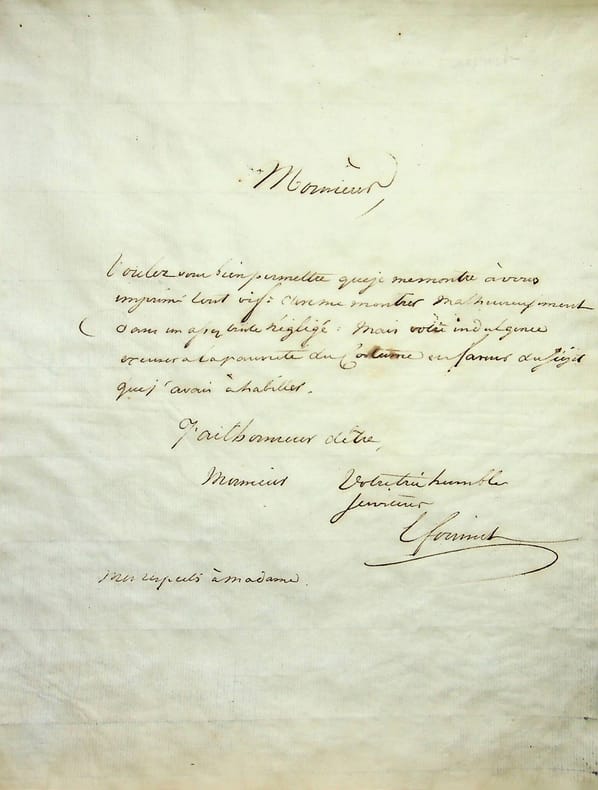 Monsieur,
Voulez vous bien permettre que je me montre à vous
imprimé tout vif: c'est me montrer Malheureusement
dans un assez triste Négligé: Mais votre indulgence
excusera la pauvreté du Costume en faveur du Sujet
que j'avais à habiller.
J'ai l'honneur d'être,
Monsieur Votre très humble
Serviteur
Mes respects à madame.